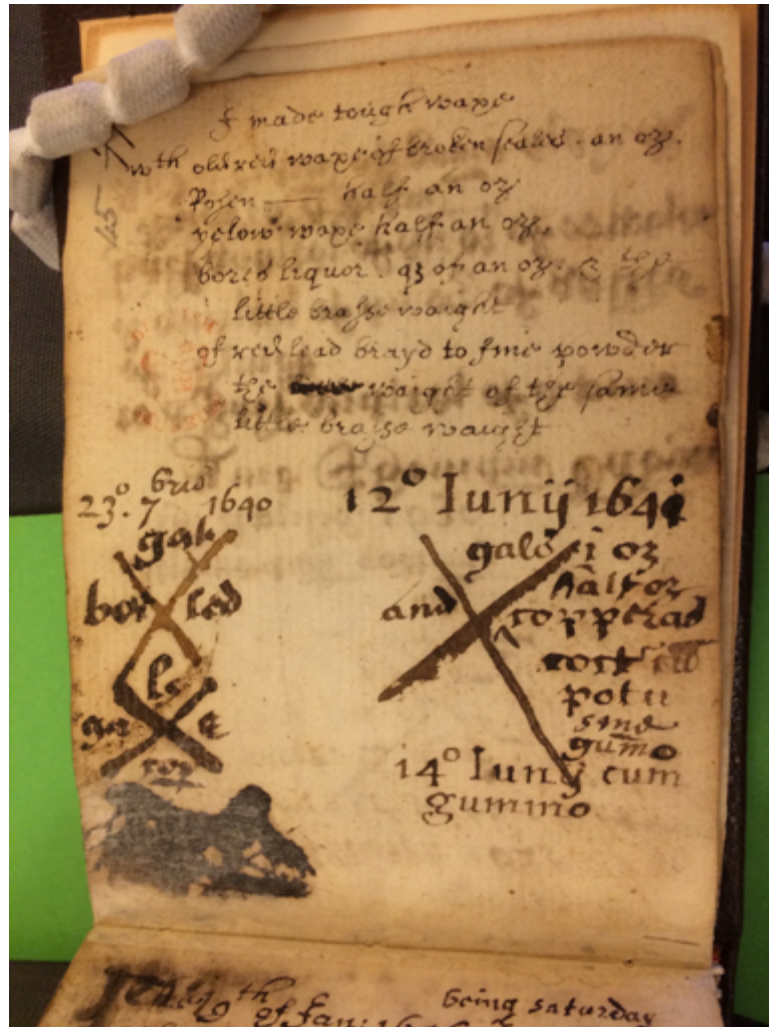 I made tough waxe
wth old red waxe of broken seales . an oz.
Rosen —— half an oz
yelow waxe half an oz.
liquor . of an oz. & the
little brasse waight
of red lead brayd to fine powder
the waight of the same
little brasse waight
23º. 7 bris 1640
gal
bor led
12º Iunij 1641
gals i oz
half oz
and copperas
potu
sine
gumo
14º Iunij cum
gummo
9th of Jan: being saturday